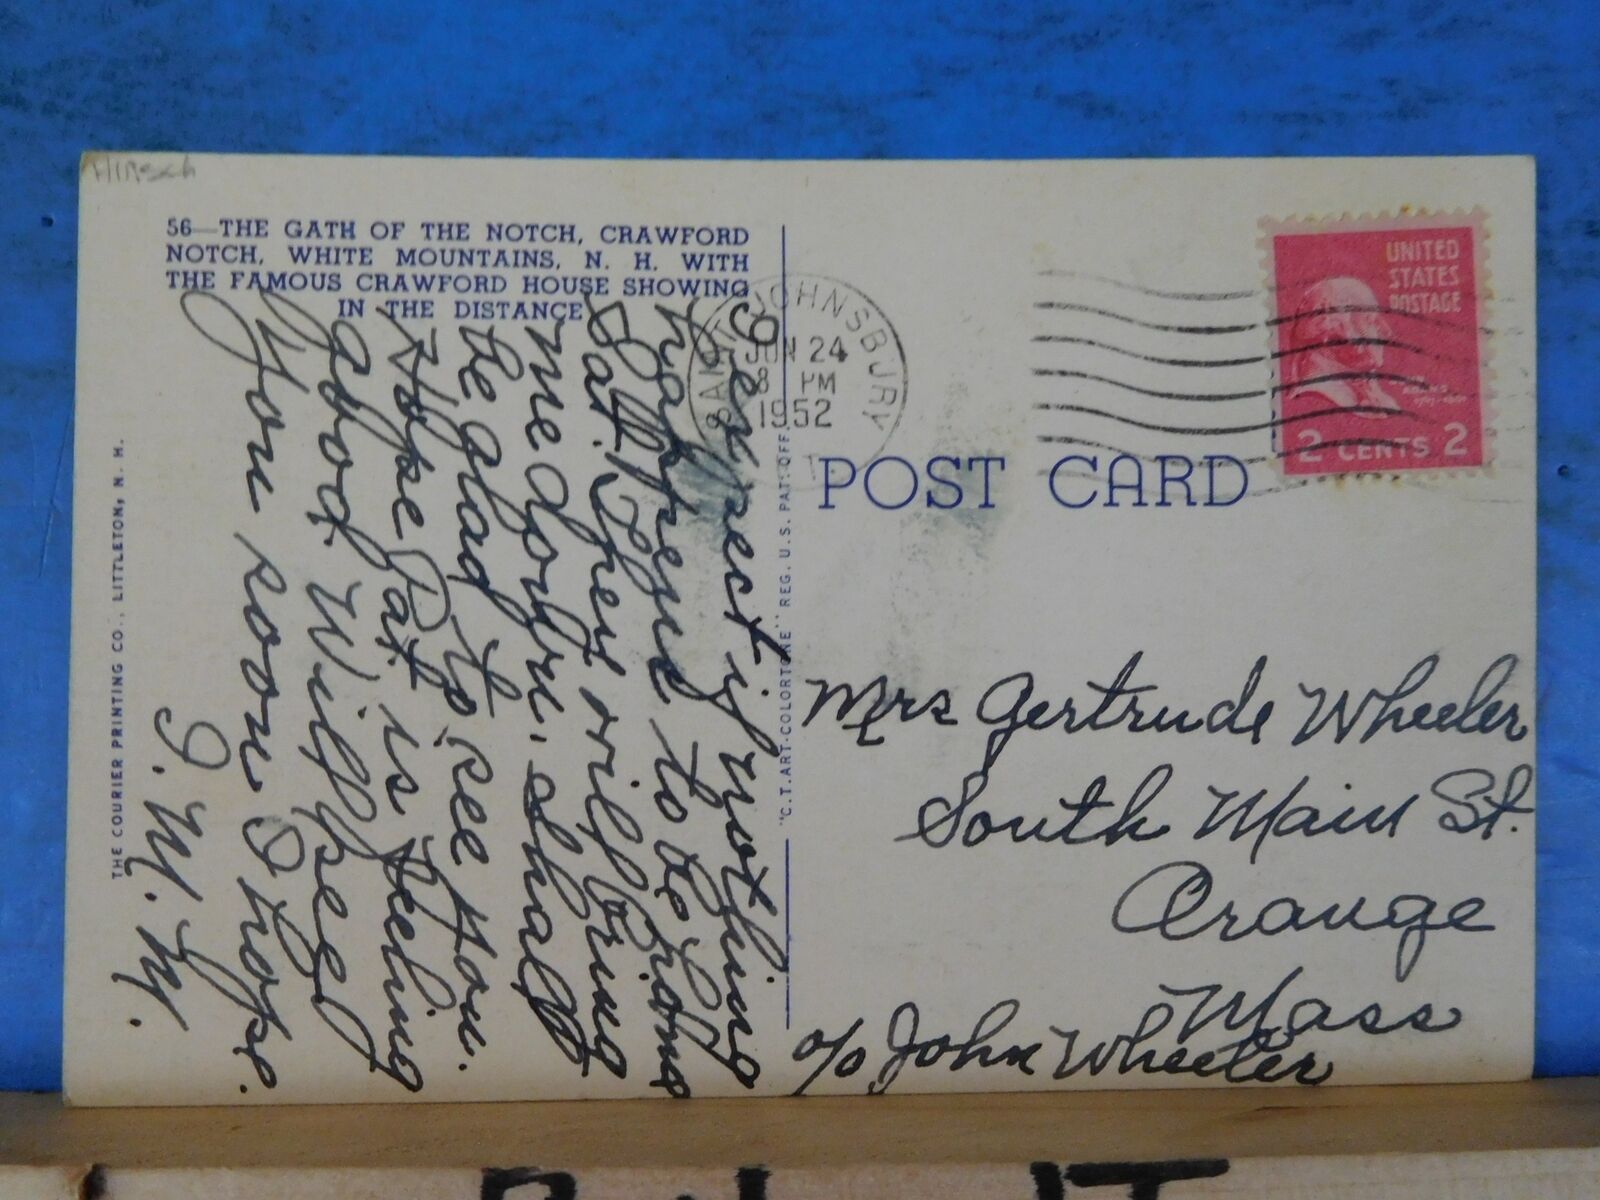 Hirsch
56—THE GATH OF THE NOTCH, CRAWFORD
NOTCH, WHITE MOUNTAINS, N. H. WITH
THE FAMOUS CRAWFORD HOUSE SHOWING
IN THE DISTANCE
I expect if nothing
happens to be home
Sat. They will bring
me down. Shall
be glad to see you.
Hope Pat. is feeling
good. Will see
you soon I hope.
I. M. M.
THE COURIER PRINTING CO., LITTLETON, N. H.
"C.T. ART-COLORTONE" REG. U.S. PAT. OFF.
SAINT JOHNSBURY
JUN 24
8 PM
1952
UNITED
STATES
POSTAGE
JOHN
ADAMS
2 CENTS 2
POST CARD
Mrs Gertrude Wheeler
South Main St.
Orange
Mass
c/o John Wheeler